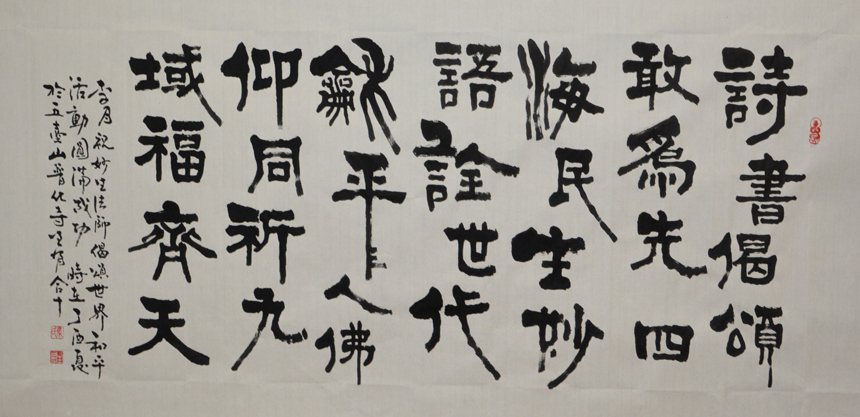 詩書偈頌
敢為先四
海民生妙
語詮世代
龢平人佛
仰同祈九
域福齊天
李月祝妙生法師偈頌世界和平
活動圓滿成功 時在丁酉夏
於五臺山普化寺 合十